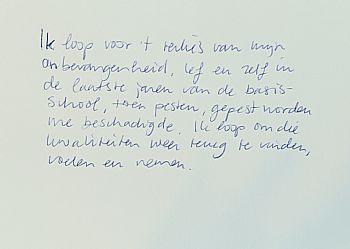 Ik loop voor 't verlies van mijn
onbevangenheid, lef en zelf in
de laatste jaren van de basis-
school, toen pesten, gepest worden
me beschadigde. Ik loop om die
kwaliteiten weer terug te vinden,
voelen en nemen.